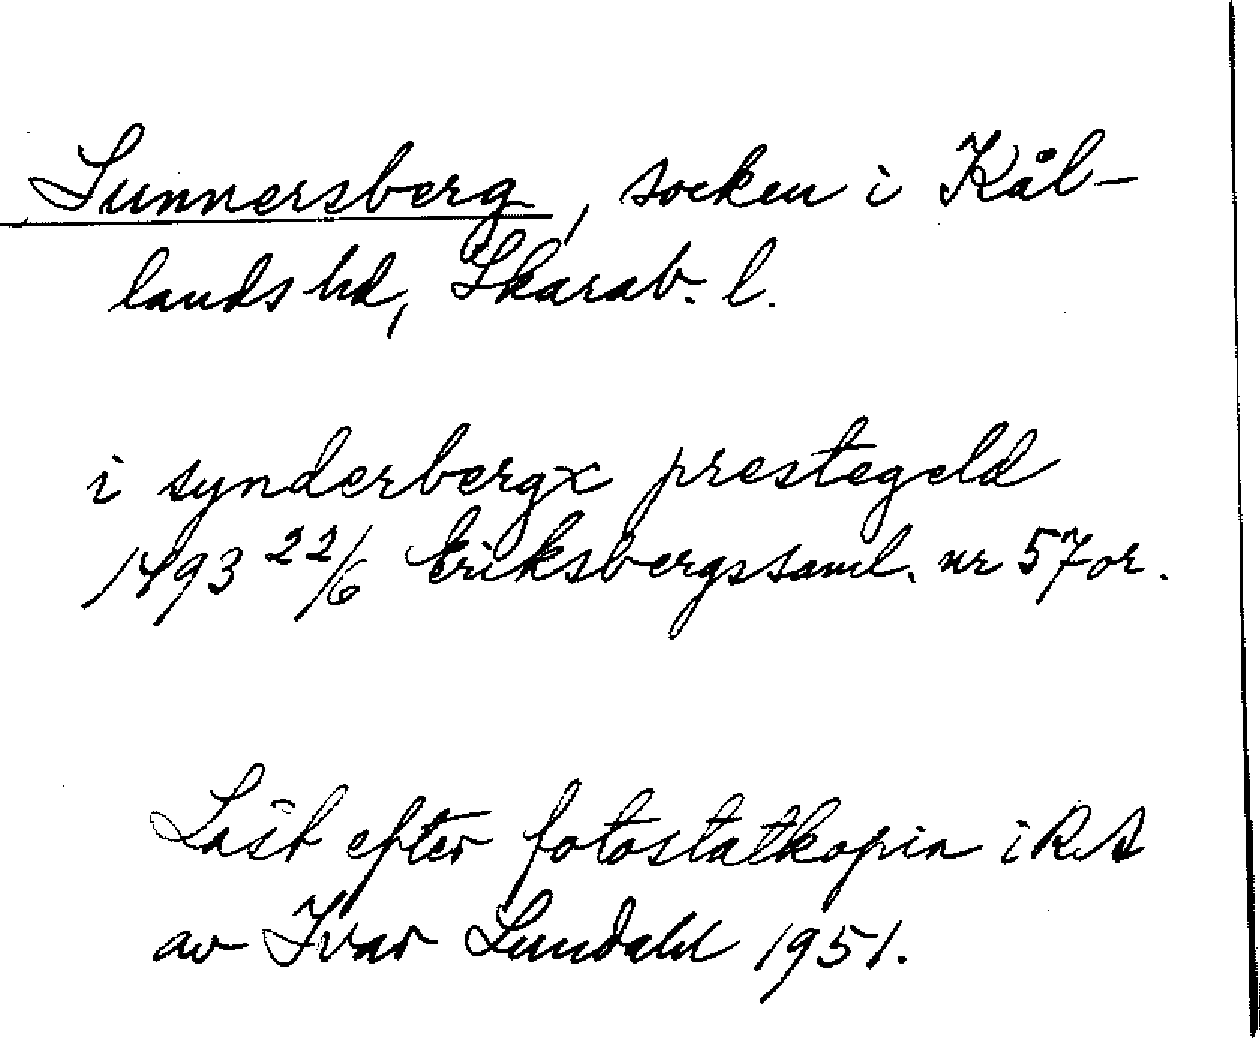 Sunnersberg, socken i Kål-
lands hd, Skarab. l.
i synderbergx prestegeld
1493 22/6 Eriksbergssaml. nr 57 or.
Läst efter fotostatkopia i RA
av Ivar Lundahl 1951.